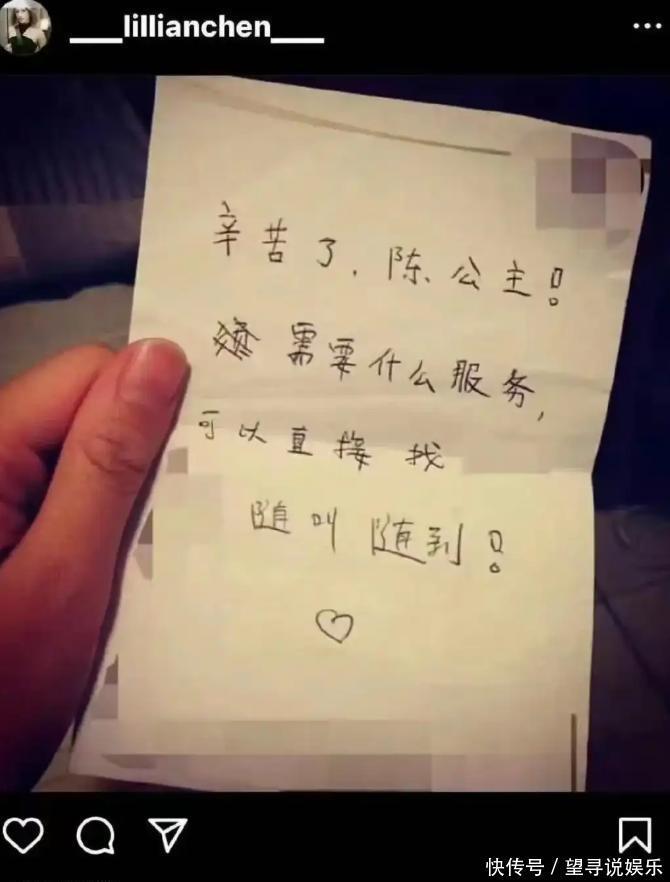 ___lillianchen___
辛苦了，陈公主！
需要什么服务，
可以直接找
随叫随到！
快传号 / 望寻说娱乐